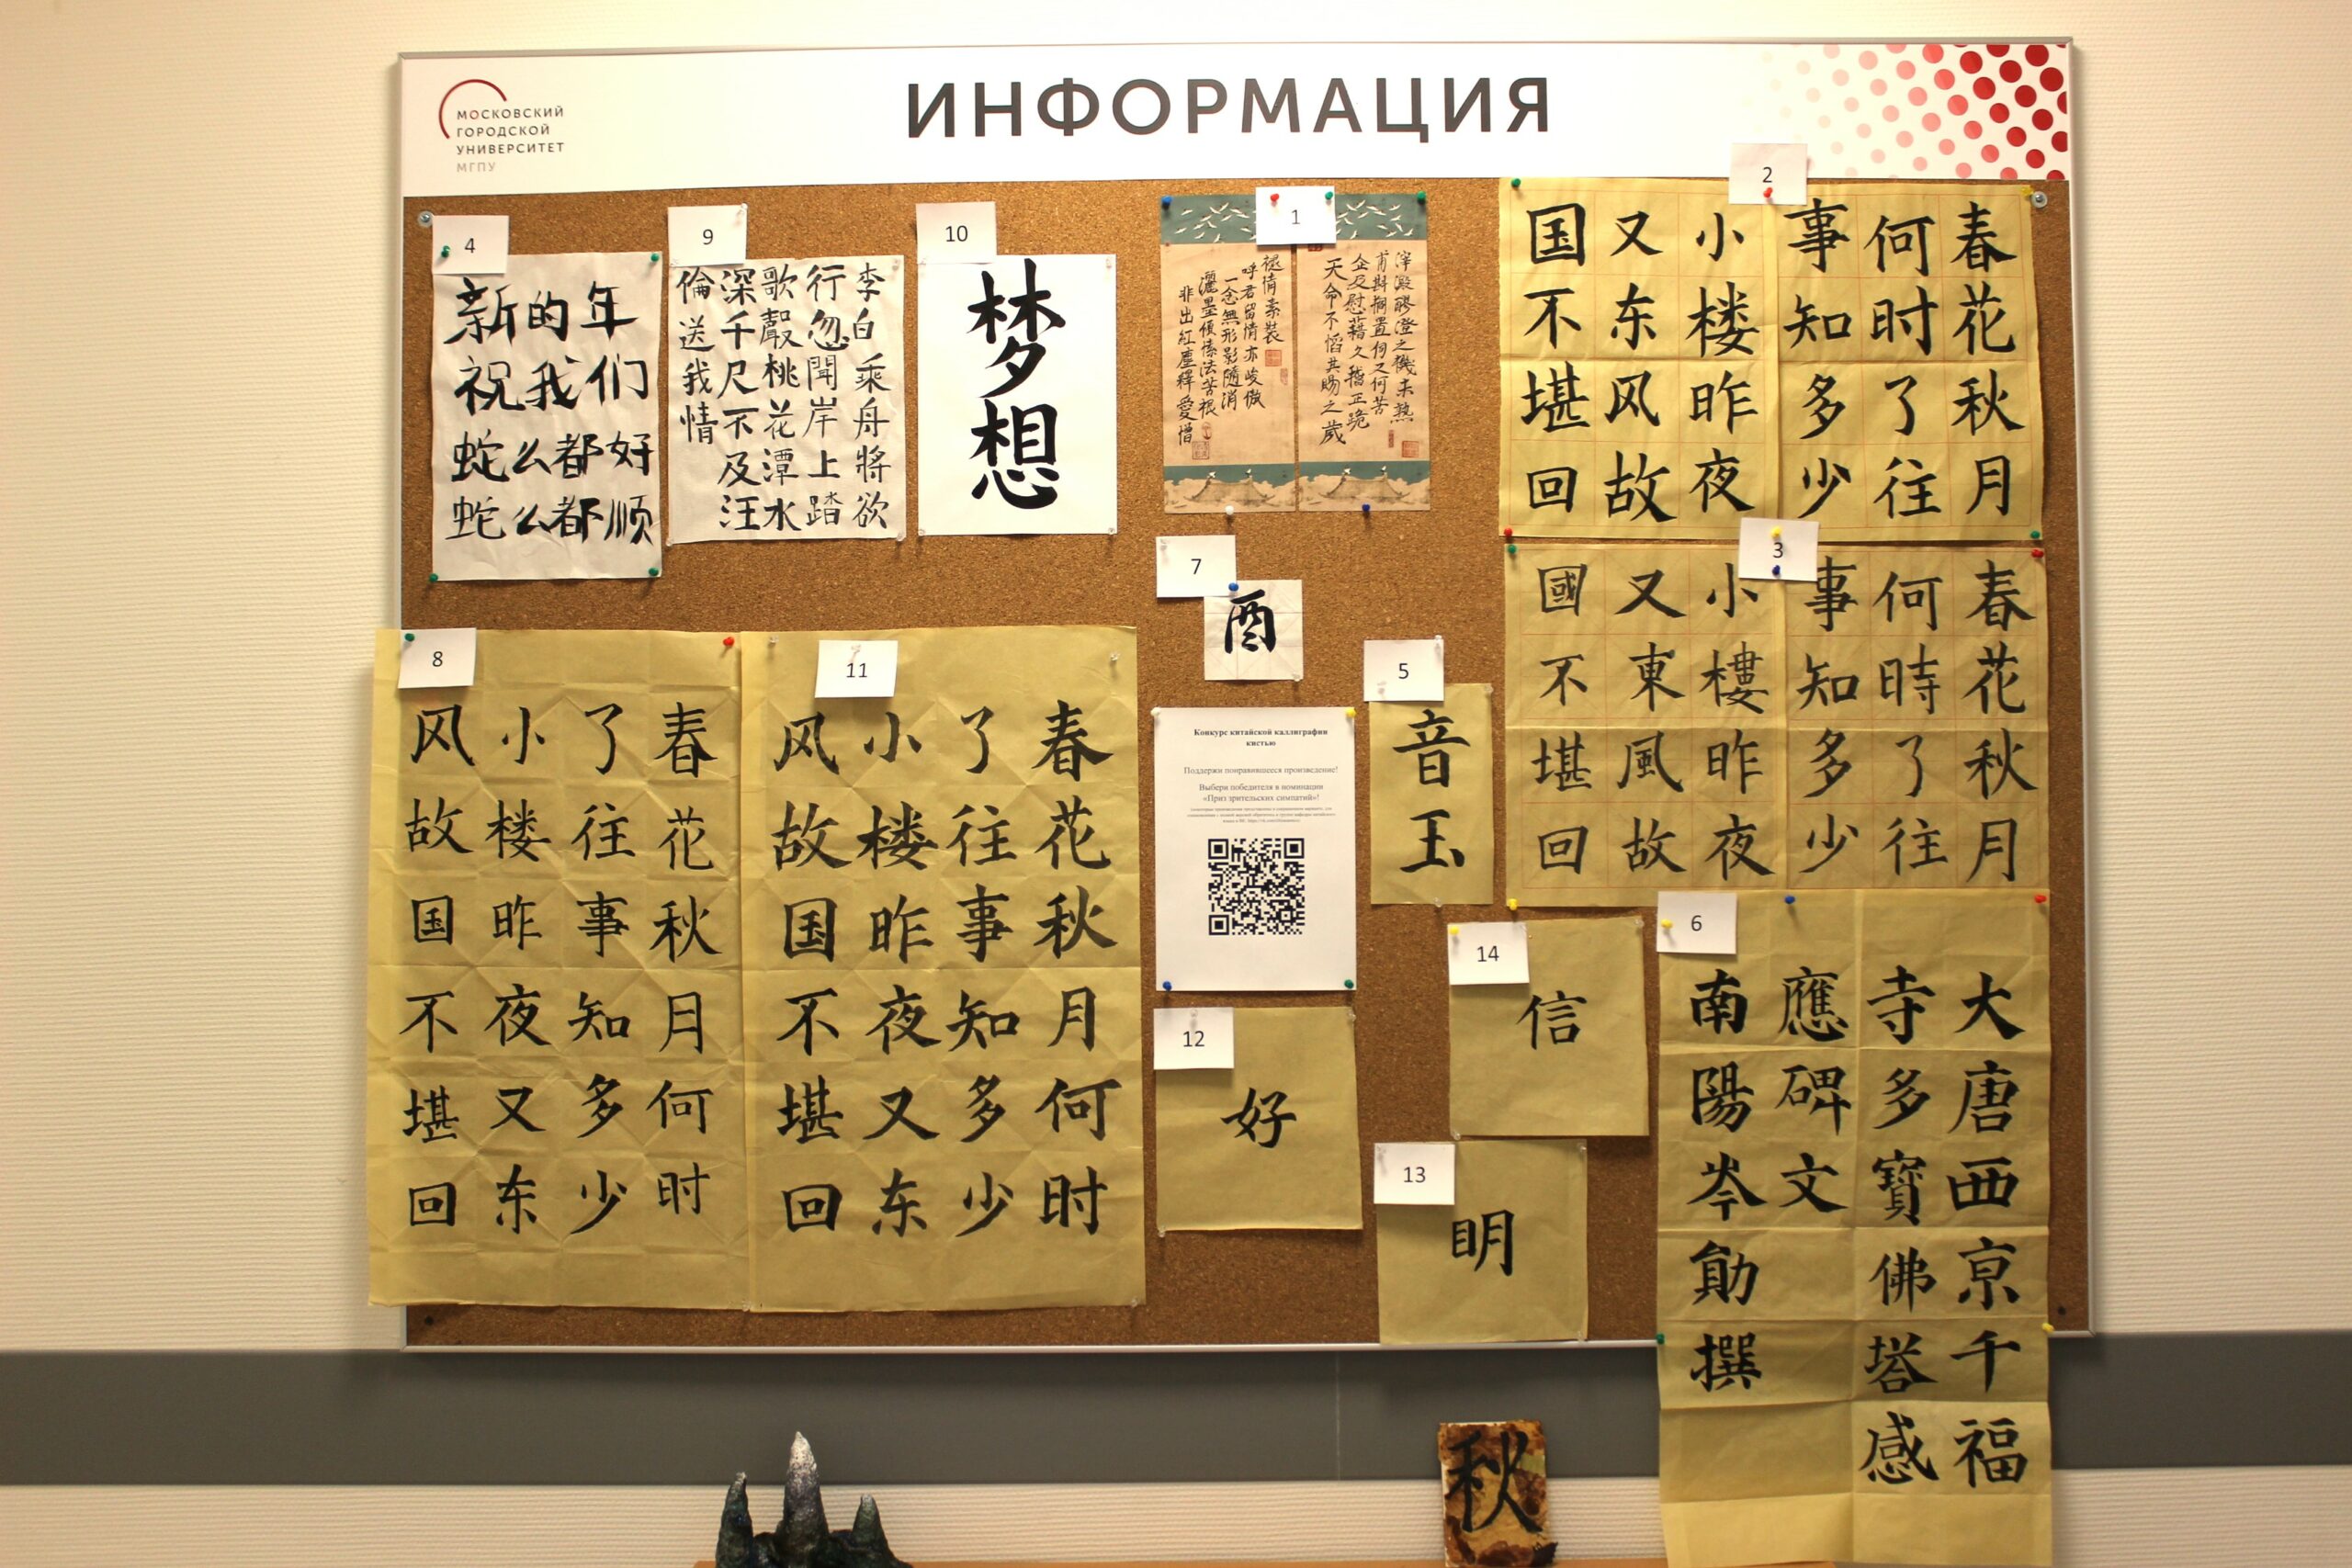 МОСКОВСКИЙ
ГОРОДСКОЙ
УНИВЕРСИТЕТ
МГПУ
ИНФОРМАЦИЯ
4
新的年
祝我们
蛇么都好
蛇么都顺
9
李白乘舟將欲
行忽聞岸上踏
歌聲桃花潭水
深千尺不及汪
倫送我情
10
梦想
1
滓澱醪澄之機未熟
置何又何苦
企及慰藉久稽正
天命不慆其賜之歲
褪情素裝
呼君留情亦峻傲
一念無形影隨消
灑墨傾愫法苦根
非出紅塵釋愛憎
2
春花秋月
何时了往
事知多少
小楼昨夜
又东风故
国不堪回
3
春花秋月
何時了往
事知多少
小樓昨夜
又東風故
國不堪回
7
酉
5
音玉
8
春花秋月何时
了往事知多少
小楼昨夜又东
风故国不堪回
11
春花秋月何时
了往事知多少
小楼昨夜又东
风故国不堪回
Конкурс китайской каллиграфии
кистью
Поддержи понравившееся произведение!
Выбери победителя в номинации
«Приз зрительских симпатий»!
12
好
14
信
13
明
6
大唐西京千福
寺多寶佛塔感
應碑文
南陽岑勛撰
秋